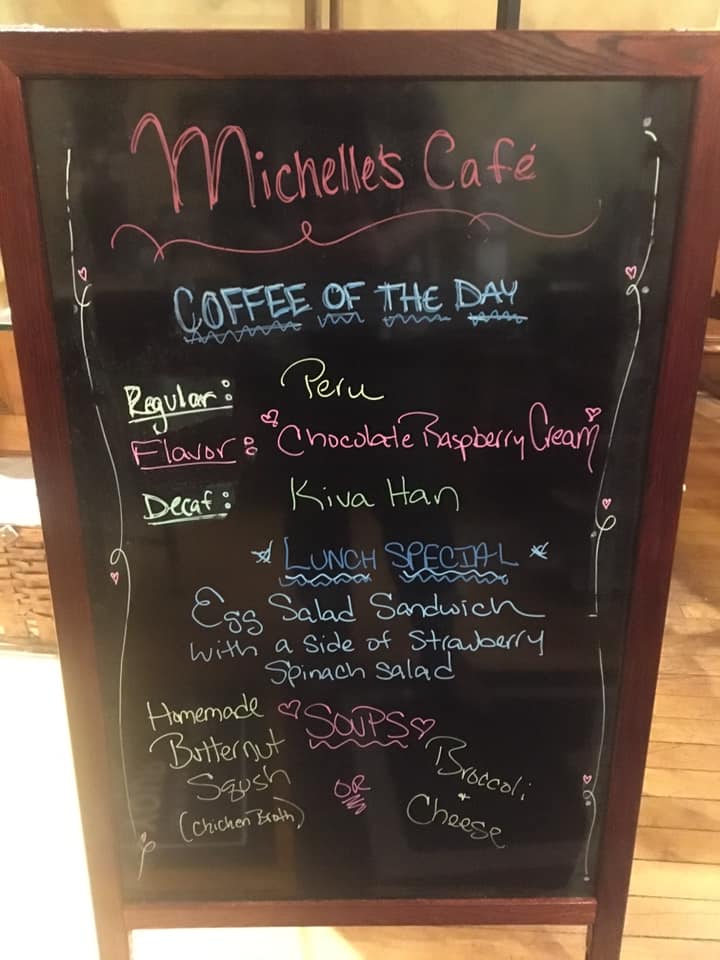 Michelle's Café
COFFEE OF THE DAY
Regular: Peru
Flavor: Chocolate Raspberry Cream
Decaf: Kiva Han
LUNCH SPECIAL
Egg Salad Sandwich
with a side of Strawberry
Spinach salad
SOUPS
Homemade
Butternut
Sqush
(Chicken Broth)
OR
Broccoli
+
Cheese